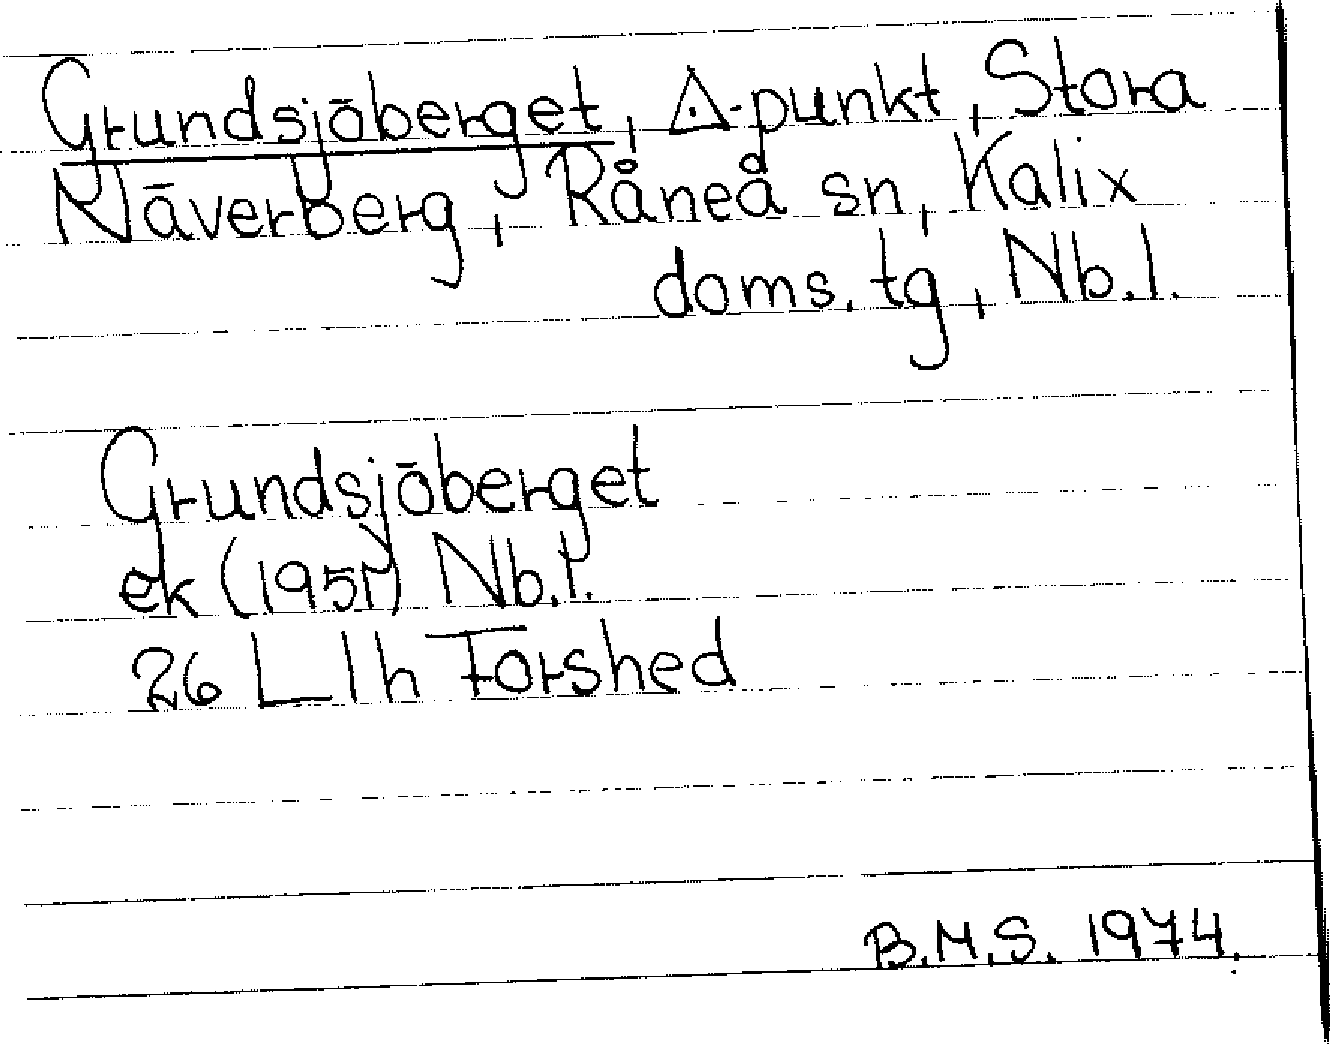 Grundsjöberget, △-punkt, Stora
Näverberg, Råneå sn, Kalix
doms. tg, Nb.l.
Grundsjöberget
ek (1951) Nb.l.
26 L 1h Forshed
B.M.S. 1974.